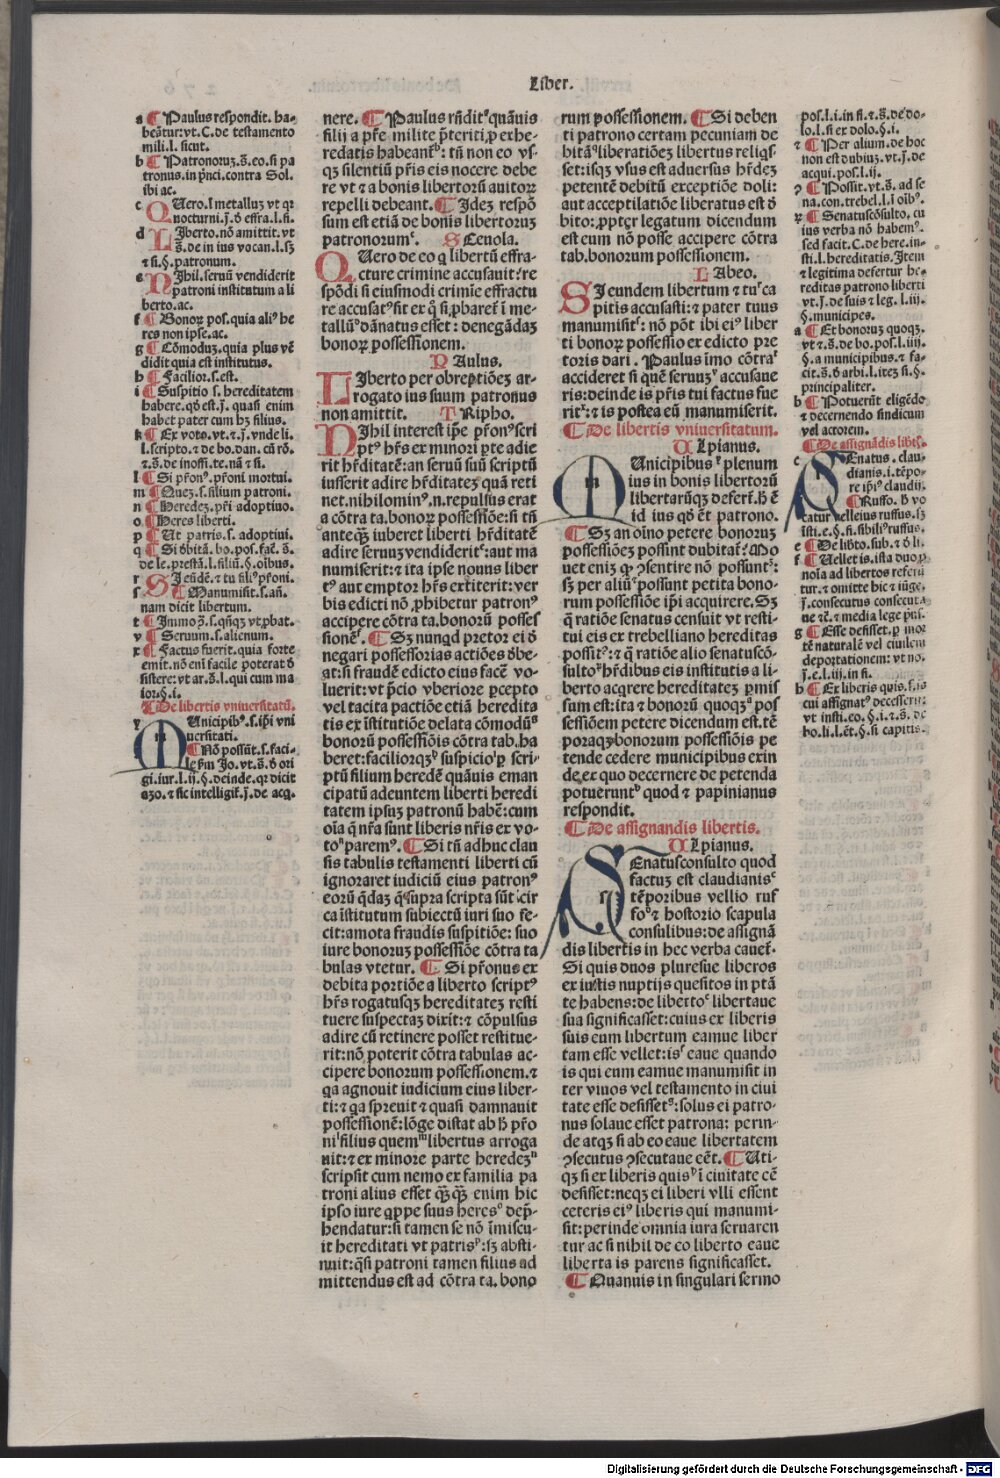 Liber.
a ¶ Paulus respondit. ha-
beãtur: vt. C. de testamento
mili. l. sicut.
b ¶ Patronoruz. s̃. eo. si pa
tronus. in pṛinci. contra Sol.
ibi ac.
c QUero. l metalluz vt qr
nocturni. j̃. ð effra. l. fi.
d LIberto. nõ amittit. vt
s̃. de in ius vocan. l. sz
⁊ si. §. patronum.
e NIhil. seruũ vendiderit
patroni institutum a li
berto. ac.
f ¶ Bonoꝝ pos. quia aliꝰ he
res non ipse. ac.
g ¶ Cõmoduz. quia plus vẽ
didit quia est institutus.
h ¶ Facilior. s. est.
i ¶ Suspitio s. hereditatem
habere. qð est. j̃. quasi enim
habet pater cum hz filius.
k ¶ Ex voto. vt. ⁊ j̃. vnde li.
l. scripto. ⁊ de bo. dan. cũ rõ.
⁊ s̃. de inoffi. te. nã ⁊ si.
l ¶ Si pr̃onꝰ. pr̃oni mortui.
m ¶ Quez. s. filium patroni.
n ¶ Heredez. pr̃i adoptiuo.
o ¶ Heres liberti.
p ¶ Ut patris. s. adoptiui.
q ¶ Si ðbitã. bo. pos. fac̃. s̃.
de le. prestã. l. filiũ. §. oĩbus.
r SI eũdẽ. ⁊ tu filiꝰ pr̃oni.
s ¶ Manumisit. s. añ.
nam dicit libertum.
t ¶ Immo ꝯ̃. s. qñqz vt ꝓbat.
v ¶ Seruum. s. alienum.
x ¶ Factus fuerit. quia forte
emit. nõ enĩ facile poterat ð
sistere: vt ar. s̃. l. qui cum ma
ior. §. i.
¶ De libertis vniuersitatũ.
y MUnicipibꝰ. s. ip̃i vni
uersitati.
¶ Nõ possũt. s. faci-
le ẜm Jo. vt. s̃. ð ori
gi. iur. l. ij. §. deinde. qꝛ dicit
azo. ⁊ sic intelligit̃. j̃. de acq.
nere. ¶ Paulus rñditᵃ quãuis
filii a pr̃e milite p̃teriti ꝑ exhe-
redatis habeantᵇ: tñ non eo vs-
qz silentiũ pr̃is eis nocere debe
re vt ⁊ a bonis libertorũ auitoꝝ
repelli debeant. ¶ Idez respõ
sum est etiã de bonis libertoruz
patronorumᶜ. Sceuola.
QUero de eo q̃ libertũ effra-
cture crimine accusauit: re
spõdi si eiusmodi crimĩe effractu
re accusatꝰ sit ex q̃ si, ꝓbaret̃ ĩ me-
tallũᶜ dãnatus esset: denegãdaz
bonoꝝ possessionem.
PAulus.
LIberto per obreptiõez ar-
rogato ius suum patronus
non amittit. TRipho.
NIhil interest ip̃e pr̃onꝰ scri
ptꝰ hr̃s ex minori ꝑte adie
rit hr̃ditatẽ: an seruũ suũ scriptũ
iusserit adire hr̃ditatez quã reti
net. nihilominꝰ. n. repulsus erat
a cõtra ta. bonoꝝ possessiõe: si tñ
anteqz iuberet liberti hr̃ditatẽ
adire seruuz vendideritᵉ: aut ma
numiserit: ⁊ ita ipse nouus liber
tꝰ aut emptor hr̃s extiterit: ver
bis edicti nõ ꝓhibetur patronꝰ
accipere cõtra ta. bonorũ posses
sionẽᶠ. ¶ Sz nunqd pretor ei ð
negari possessorias actiões ðbe-
at: si fraudẽ edicto eius facẽ vo-
luerit: vt p̃cio vberiore ꝑcepto
vel tacita pactiõe etiã heredita
tis ex ĩstitutiõe delata cõmodũᵍ
bonorũ possessiõis cõtra tab. ha
beret: facilioꝛqzʰ suspicioⁱ ꝑ scri-
ptũ filium heredẽ quãuis eman
cipatũ adeuntem liberti heredi
tatem ipsuz patronũ habẽ: cum
oĩa q̃ nr̃a sunt liberis nr̃is ex vo-
toᵏ paremꝰ. ¶ Si tñ adhuc clau
sis tabulis testamenti liberti cũ
ignoraret iudiciũ eius patronꝰ
eorũ q̃daz q̃ supra scripta sũt: cir
ca ĩstitutum subiectũ iuri suo fe-
cit: amota fraudis suspitiõe: suo
iure bonoruz possessiõe cõtra ta
bulas vtetur. ¶ Si pr̃onus ex
debita portiõe a liberto scriptꝰ
hr̃s rogatusqz hereditatez resti
tuere suspectaz dixit: ⁊ cõpulsus
adire cũ retinere posset restitue-
rit: nõ poterit cõtra tabulas ac-
cipere bonorum possessionem. ⁊
qa agnouit iudicium eius liber-
ti: ⁊ qa spreuit ⁊ quasi damnauit
possessionẽ: lõge distat ab h̃ pr̃o
niˡ filius quemᵐ libertus arroga
uit: ⁊ ex minore parte heredezⁿ
scripsit cum nemo ex familia pa
troni alius esset q̃zq̃z enim hic
ipso iure qppe suus heresᵒ dep̃-
hendatur: si tamen se nõ ĩmiscu-
it hereditati vt patrisᵖ: sz absti-
nuit: q̃si patroni tamen filius ad
mittendus est ad cõtra ta. bono
rum possessionem. ¶ Si deben
ti patrono certam pecuniam de
bitãᑫ liberatiõez libertus reliqs-
set: isqz vsus est aduersus hr̃dez
petentẽ debitũ exceptiõe doli:
aut acceptilatiõe liberatus est ð
bito: ꝓpter legatum dicendum
est eum nõ posse accipere cõtra
tab. bonorum possessionem.
LAbeo.
SI eundem libertum ⁊ tuʳ ca
pitis accusasti: ⁊ pater tuus
manumisitˢ: nõ põt ibi eiꝰ liber
ti bonoꝝ possessio ex edicto pre
toris dari. Paulus ĩmo cõtraᵗ
accideret si quẽ seruuzᵛ accusaue
ris: deinde is pr̃is tui factus fue
ritˣ: ⁊ is postea eũ manumiserit.
¶ De libertis vniuersitatum.
ULpianus.
MUnicipibusʸ plenum
ius in bonis libertorũ
libertarũqz defert̃. h̃ ẽ
id ius qð ẽt patrono.
¶ Sz an oĩno petere bonoruz
possessiõez possint dubitat̃: Mo
uet eniz q̃ ꝯsentire nõ possuntᶻ:
sz per aliũ possunt petita bono-
rum possessiõe ip̃i acquirere. Sz
q̃ ratiõe senatus censuit vt resti-
tui eis ex trebelliano hereditas
possit: ⁊ q̃ ratiõe alio senatuscõ-
sulto hr̃dibus eis institutis a li-
berto acqrere hereditatez ꝑmis
sum est: ita ⁊ bonorũ quoqzᵃ pos
sessiõem petere dicendum est. tẽ
poraqz bonorum possessiõis pe
tende cedere municipibus exin
de. ex quo decernere de petenda
potueruntᵇ quod ⁊ papinianus
respondit.
¶ De assignandis libertis.
ULpianus.
SEnatusconsulto quod
factuz est claudianisᶜ
tẽporibus vellio ruf
foᵈ ⁊ hostorio scapula
consulibus: de assignã
dis libertis in hec verba cauet̃.
Si quis duos pluresue liberos
ex iustis nuptijs quesitos in ptã
te habens: de libertoᵉ libertaue
sua significasset: cuius ex liberis
suis eum libertum eamue liber
tam esse vellet: isᶠ eaue quando
is qui eum eamue manumisit in
ter viuos vel testamento in ciui
tate esse desissetᵍ: solus ei patro-
nus solaue esset patrona: perin-
de atqz si ab eo eaue libertatem
ꝯsecutus ꝯsecutaue cẽt. ¶ Uti-
qz si ex liberis quisʰ ĩ ciuitate eẽ
desisset: neqz ei liberi vlli essent
ceteris eiꝰ liberis qui manumi-
sit: perinde omnia iura seruaren
tur ac si nihil de eo liberto eaue
liberta is parens significasset.
¶ Quanuis in singulari sermo
pos. l. i. in fi. ⁊. s̃. de do-
lo. l. si ex dolo. §. i.
⁊ ¶ Per alium. de hoc
non est dubiuz. vt. j̃. de
acqui. pos. l. ij.
ꝯ ¶ Possit. vt. s̃. ad se
na. con. trebel. l. ĩ oĩbꝰ.
ꝝ ¶ Senatuscõsulto. cu
ius verba nõ habemꝰ.
sed facit. C. de here. in-
sti. l. hereditatis. Item
⁊ legitima defertur he-
reditas patrono liberti
vt. j̃. de suis ⁊ leg. l. iij.
§. municipes.
a ¶ Et bonoruz quoqz.
vt ⁊. s̃. de bo. pos. l. iij.
§. a municipibus. ⁊ fa-
cit. s̃. ð arbi. l. itez si. §.
principaliter.
b ¶ Potuerũt eligẽdo
⁊ decernendo sindicum
vel actorem.
¶ De assignãdis libtis.
c SEnatus. clau-
dianis. i. tẽpo-
re ip̃iꝰ claudij.
¶ Ruffo. h̃ vo
catur velleius ruffus. sz
ĩsti. e. §. fi. sibiliꝰ ruffus.
e ¶ De libto. sub. ⁊ ð li.
f ¶ Uellet is. ista duo ꝓ
noĩa ad libertos referũ
tur. ⁊ omitte hic ⁊ iũge.
j̃. consecutus consecuta
ue ⁊c̃. ⁊ media lege pri.
g ¶ Esse desisset. ꝑ mor
tẽ naturalẽ vel ciuilem
deportationem: vt no.
j̃. e. l. iij. in fi.
h ¶ Ex liberis quis. s. is
cui assignatꝰ decesserit:
vt insti. eo. §. i. ⁊. s̃. de
bo. li. l. ẽt. §. si capitis.
Digitalisierung gefördert durch die Deutsche Forschungsgemeinschaft - DFG